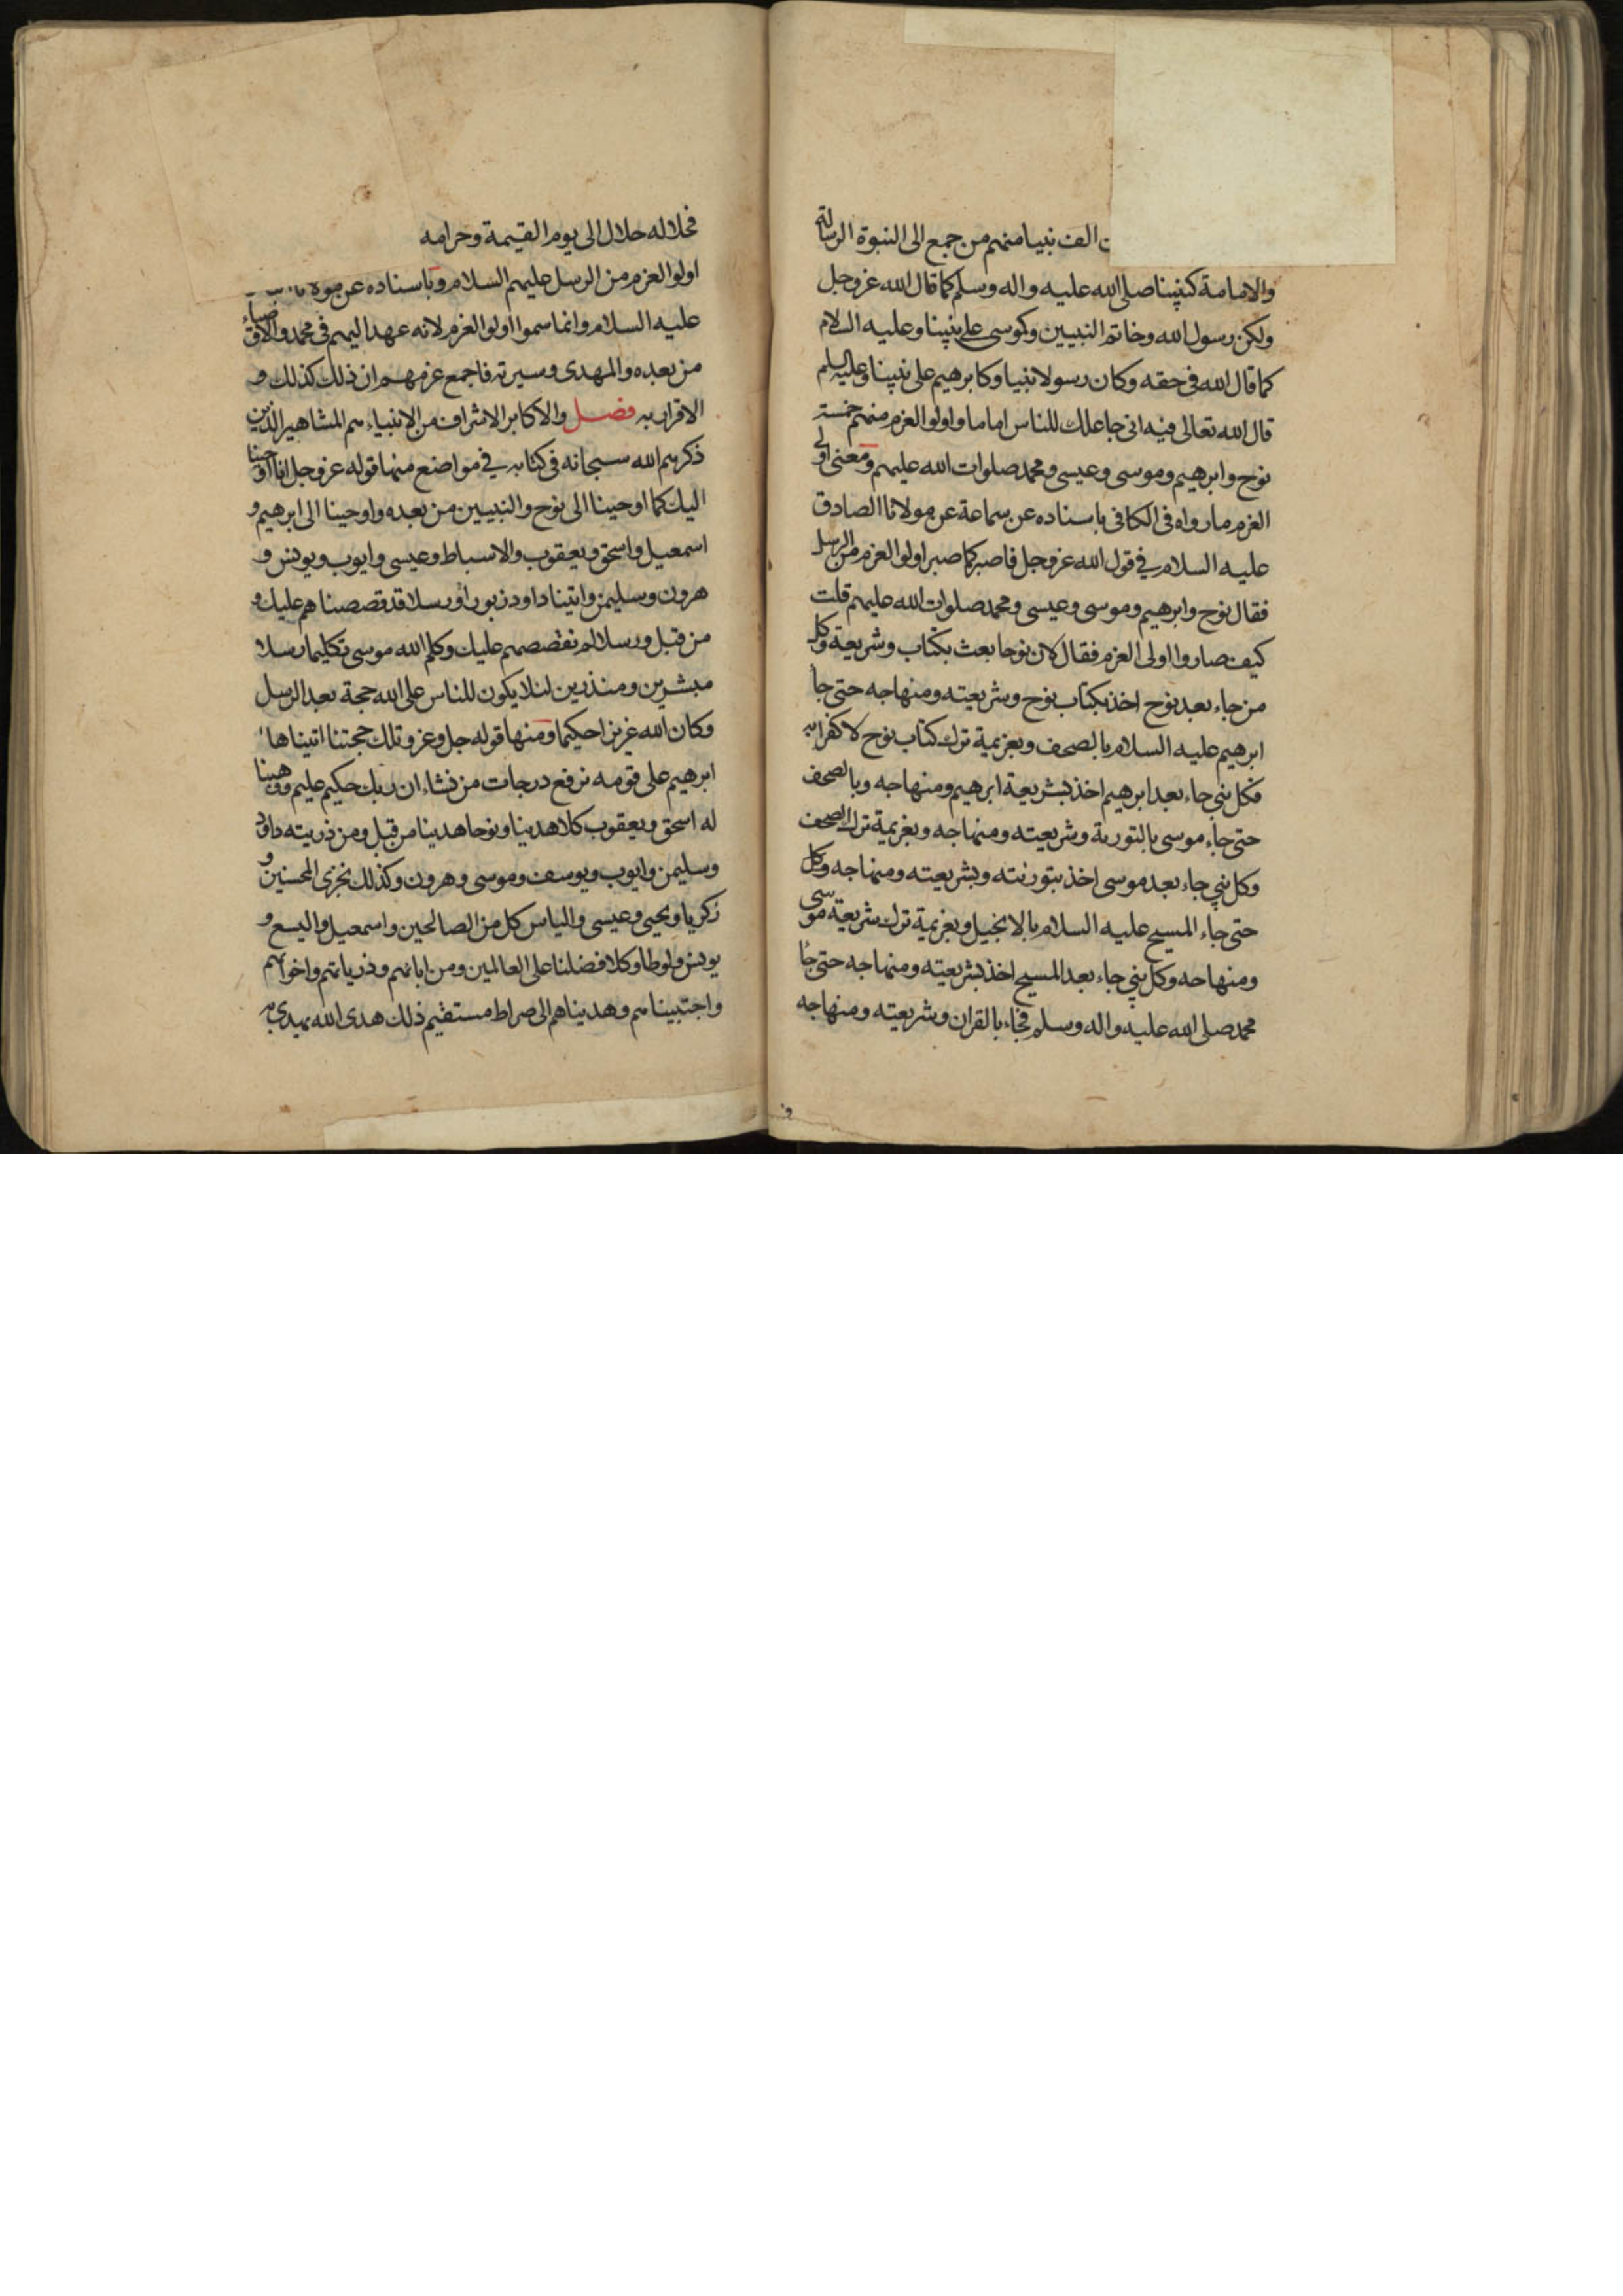 الف نبيا منهم من جمع الى النبوة الرسالة
والامامة كنبينا صلى الله عليه واله وسلم كما قال الله عز وجل
ولكن رسول الله وخاتم النبيين وكموسى على نبينا وعليه السلام
كما قال الله فى حقه وكان رسولا نبيا وكابرهيم على نبينا وعليه السلم
قال الله تعالى فيه انى جاعلك للناس اماما واولوا العزم منهم خمسة
نوح وابرهيم وموسى وعيسى ومحمد صلوات الله عليهم ومعنى اولى
العزم ما رواه فى الكافى باسناده عن سماعة عن مولانا الصادق
عليه السلام فى قول الله عز وجل فاصبر كما صبر اولوا العزم من الرسل
فقال نوح وابرهيم وموسى وعيسى ومحمد صلوات الله عليهم قلت
كيف صاروا اولى العزم فقال لان نوحا بعث بكتاب وشريعة وكل
من جاء بعد نوح اخذ بكتاب نوح وشريعته ومنهاجه حتى جاء
ابرهيم عليه السلام بالصحف وبعزيمة ترك كتاب نوح لا كفرا به
فكل نبي جاء بعد ابرهيم اخذ بشريعة ابرهيم ومنهاجه وبالصحف
حتى جاء موسى بالتورية وشريعته ومنهاجه وبعزيمة ترك الصحف
وكل نبي جاء بعد موسى اخذ بتوريته وبشريعته ومنهاجه وكل
حتى جاء المسيح عليه السلام بالانجيل وبعزيمة ترك شريعة موسى
ومنهاجه وكل نبي جاء بعد المسيح اخذ بشريعته ومنهاجه حتى جاء
محمد صلى الله عليه واله وسلم فجاء بالقران وشريعته ومنهاجه
فحلاله حلال الى يوم القيمة وحرامه
اولوا العزم من الرسل عليهم السلام وباسناده عن
عليه السلام وانما سموا اولوا العزم لانه عهد اليهم فى محمد والاوصياء
من بعده والمهدى وسيرته فاجمع عزمهم ان ذلك كذلك و
الاقرار به فصل والاكابر الاشراف من الانبياء هم المشاهير الذين
ذكرهم الله سبحانه فى كتابه فى مواضع منها قوله عز وجل انا اوحينا
اليك كما اوحينا الى نوح والنبيين من بعده واوحينا الى ابرهيم و
اسمعيل واسحق ويعقوب والاسباط وعيسى وايوب ويونس و
هرون وسليمن واتينا داود زبورا ورسلا قد قصصناهم عليك و
من قبل ورسلا لم نقصصهم عليك وكلم الله موسى تكليما رسلا
مبشرين ومنذرين لئلا يكون للناس على الله حجة بعد الرسل
وكان الله عزيزا حكيما ومنها قوله جل وعز وتلك حجتنا اتيناها
ابرهيم على قومه نرفع درجات من نشاء ان ربك حكيم عليم ووهبنا
له اسحق ويعقوب كلا هدينا ونوحا هدينا من قبل ومن ذريته داود
وسليمن وايوب ويوسف وموسى وهرون وكذلك نجزى المحسنين و
زكريا ويحيى وعيسى والياس كل من الصالحين واسمعيل واليسع و
يونس ولوطا وكلا فضلنا على العالمين ومن ابائهم وذرياتهم واخوانهم
واجتبيناهم وهديناهم الى صراط مستقيم ذلك هدى الله يهدى به